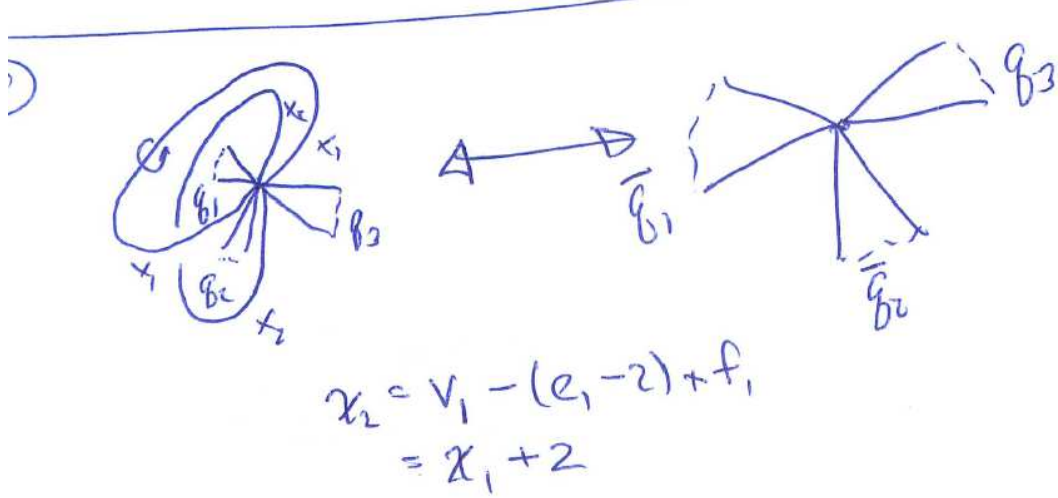 x₂
x₁
q₁
q₃
x₁
q₂
x₂
q̄₁
q₃
q̄₂
χ₂ = V₁ - (e₁ - 2) + f₁
= χ₁ + 2